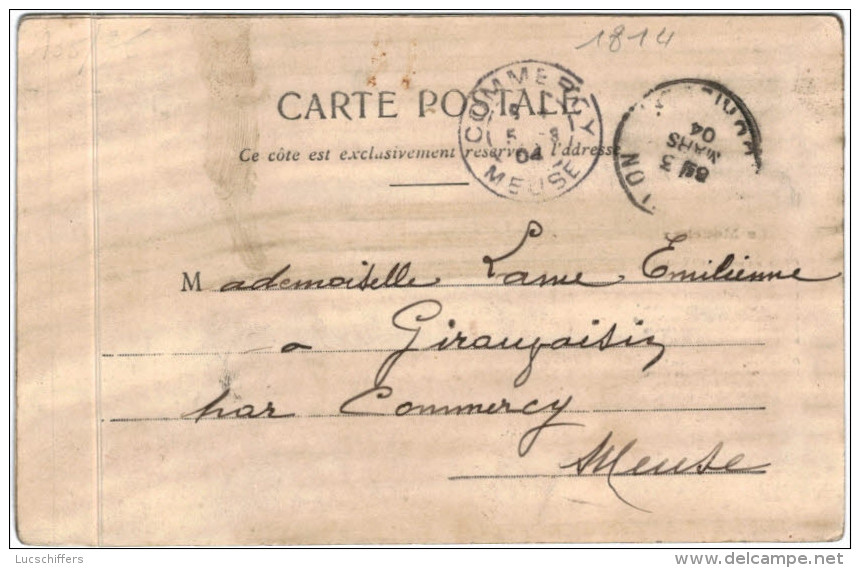 1814
CARTE POSTALE
COMMERCY
5 - 3
04
MEUSE
3
MARS
04
Ce côte est exclusivement reservé à l'addresse
Mademoiselle Lame Emilienne
a Girauvoisin
par Commercy
Meuse
Lucschiffers
www.delcampe.net